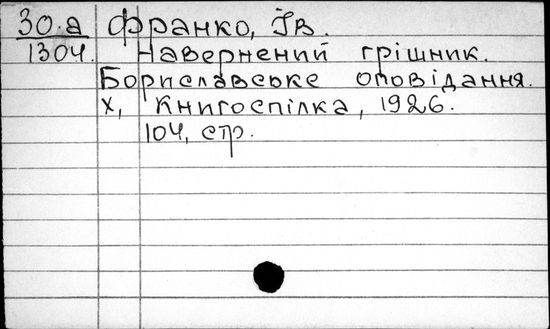 30.а Франко, Ів.
1304. Навернений грішник.
Бориславське оповідання.
Х, Книгоспілка, 1926.
104, стр.